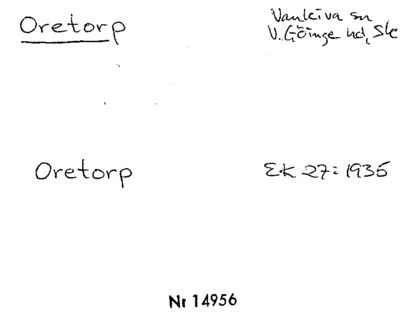 Oretorp
Vankiva sn
V. Göinge hd, Skc
Oretorp
EK 27: 1935
Nr 14956